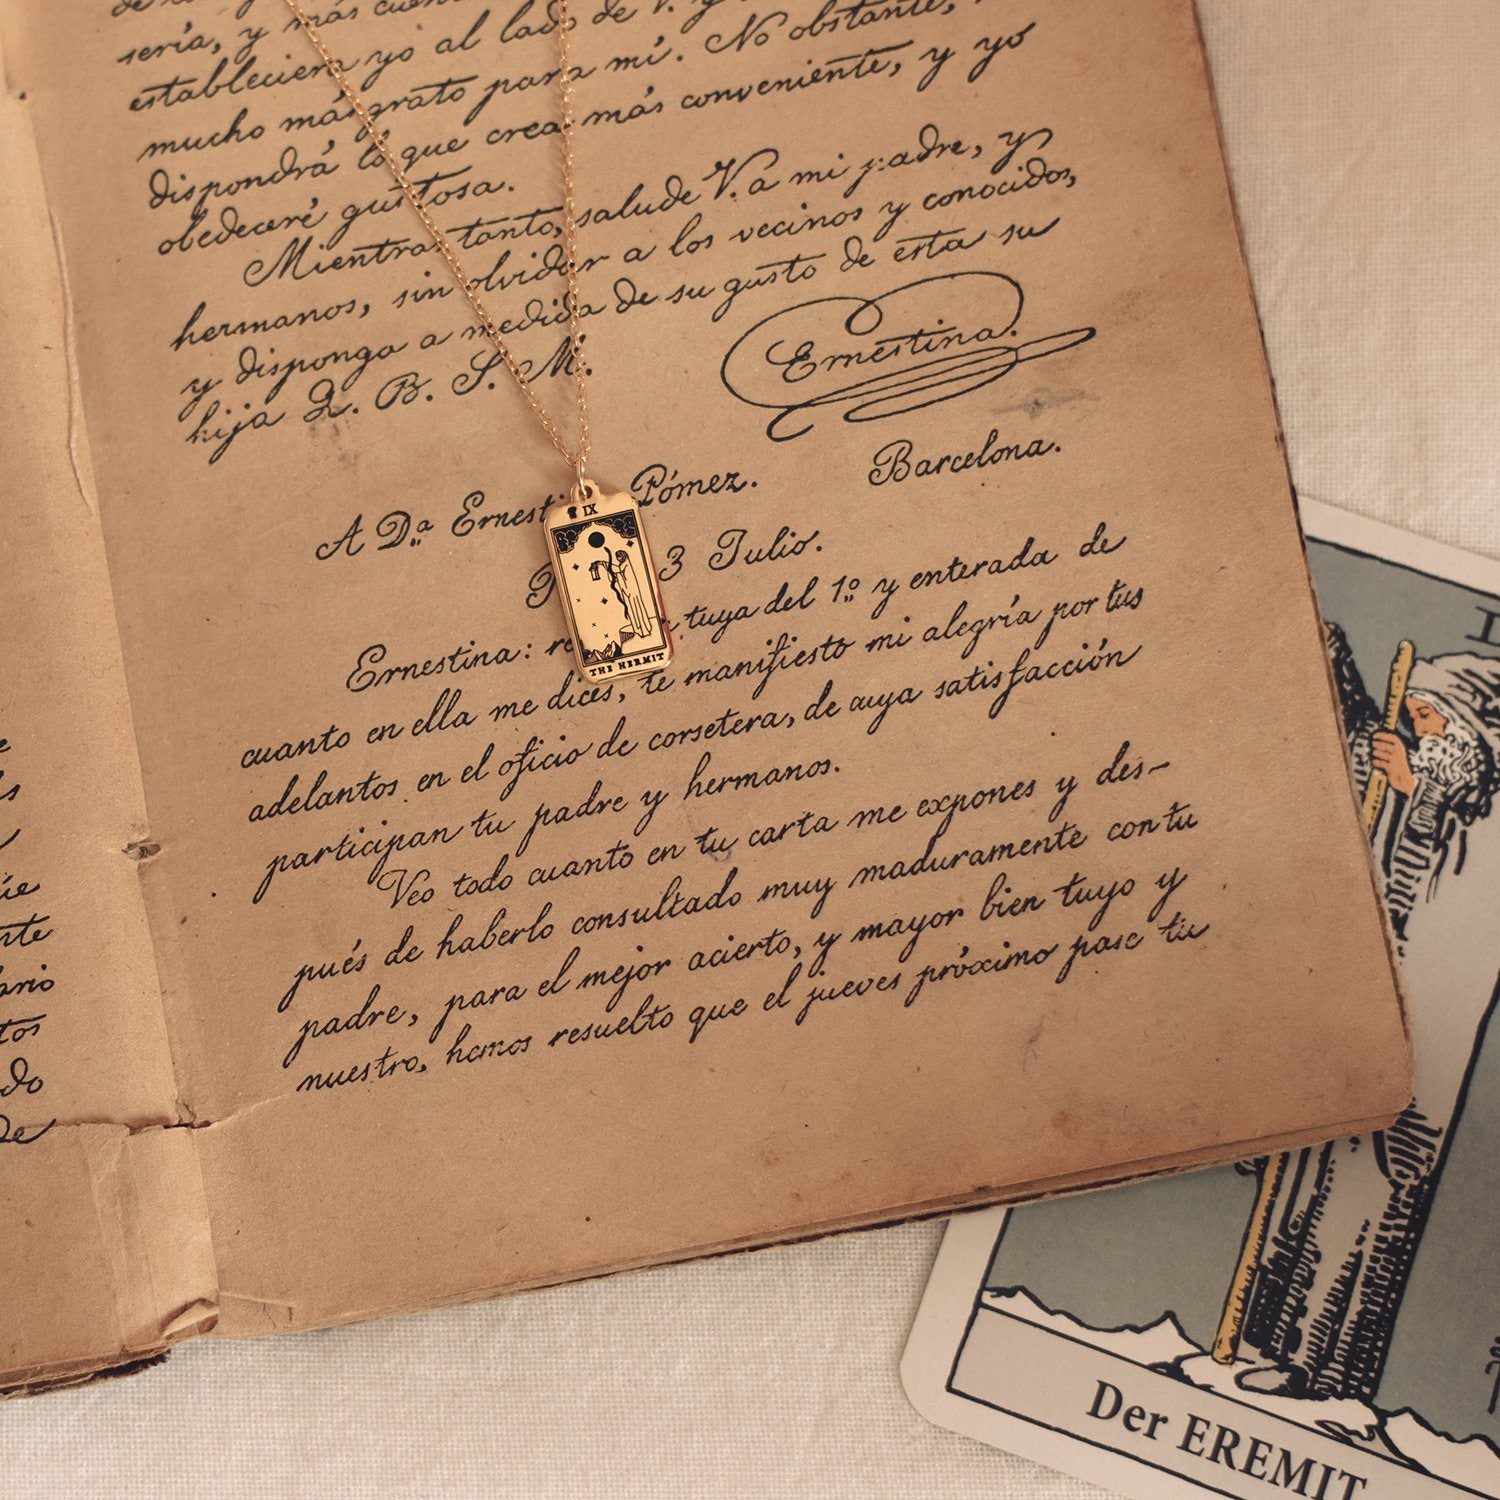 sería, y más
estableciera yo al lado de V. y
mucho más grato para mí. No obstante,
dispondrá lo que crea más conveniente, y yo
obedeceré gustosa.
Mientras tanto, salude V. a mi padre, y
hermanos, sin olvidar a los vecinos y conocidos,
y disponga a medida de su gusto de esta su
hija Q. B. S. M.
Ernestina.
A D.ª Ernesti Pómez.
Barcelona.
3 Julio.
Ernestina: re tuya del 1.º y enterada de
cuanto en ella me dices, te manifiesto mi alegría por tus
adelantos en el oficio de corsetera, de cuya satisfacción
participan tu padre y hermanos.
Veo todo cuanto en tu carta me expones y des-
pués de haberlo consultado muy maduramente con tu
padre, para el mejor acierto, y mayor bien tuyo y
nuestro, hemos resuelto que el jueves próximo pase tu
IX
THE HERMIT
Der EREMIT